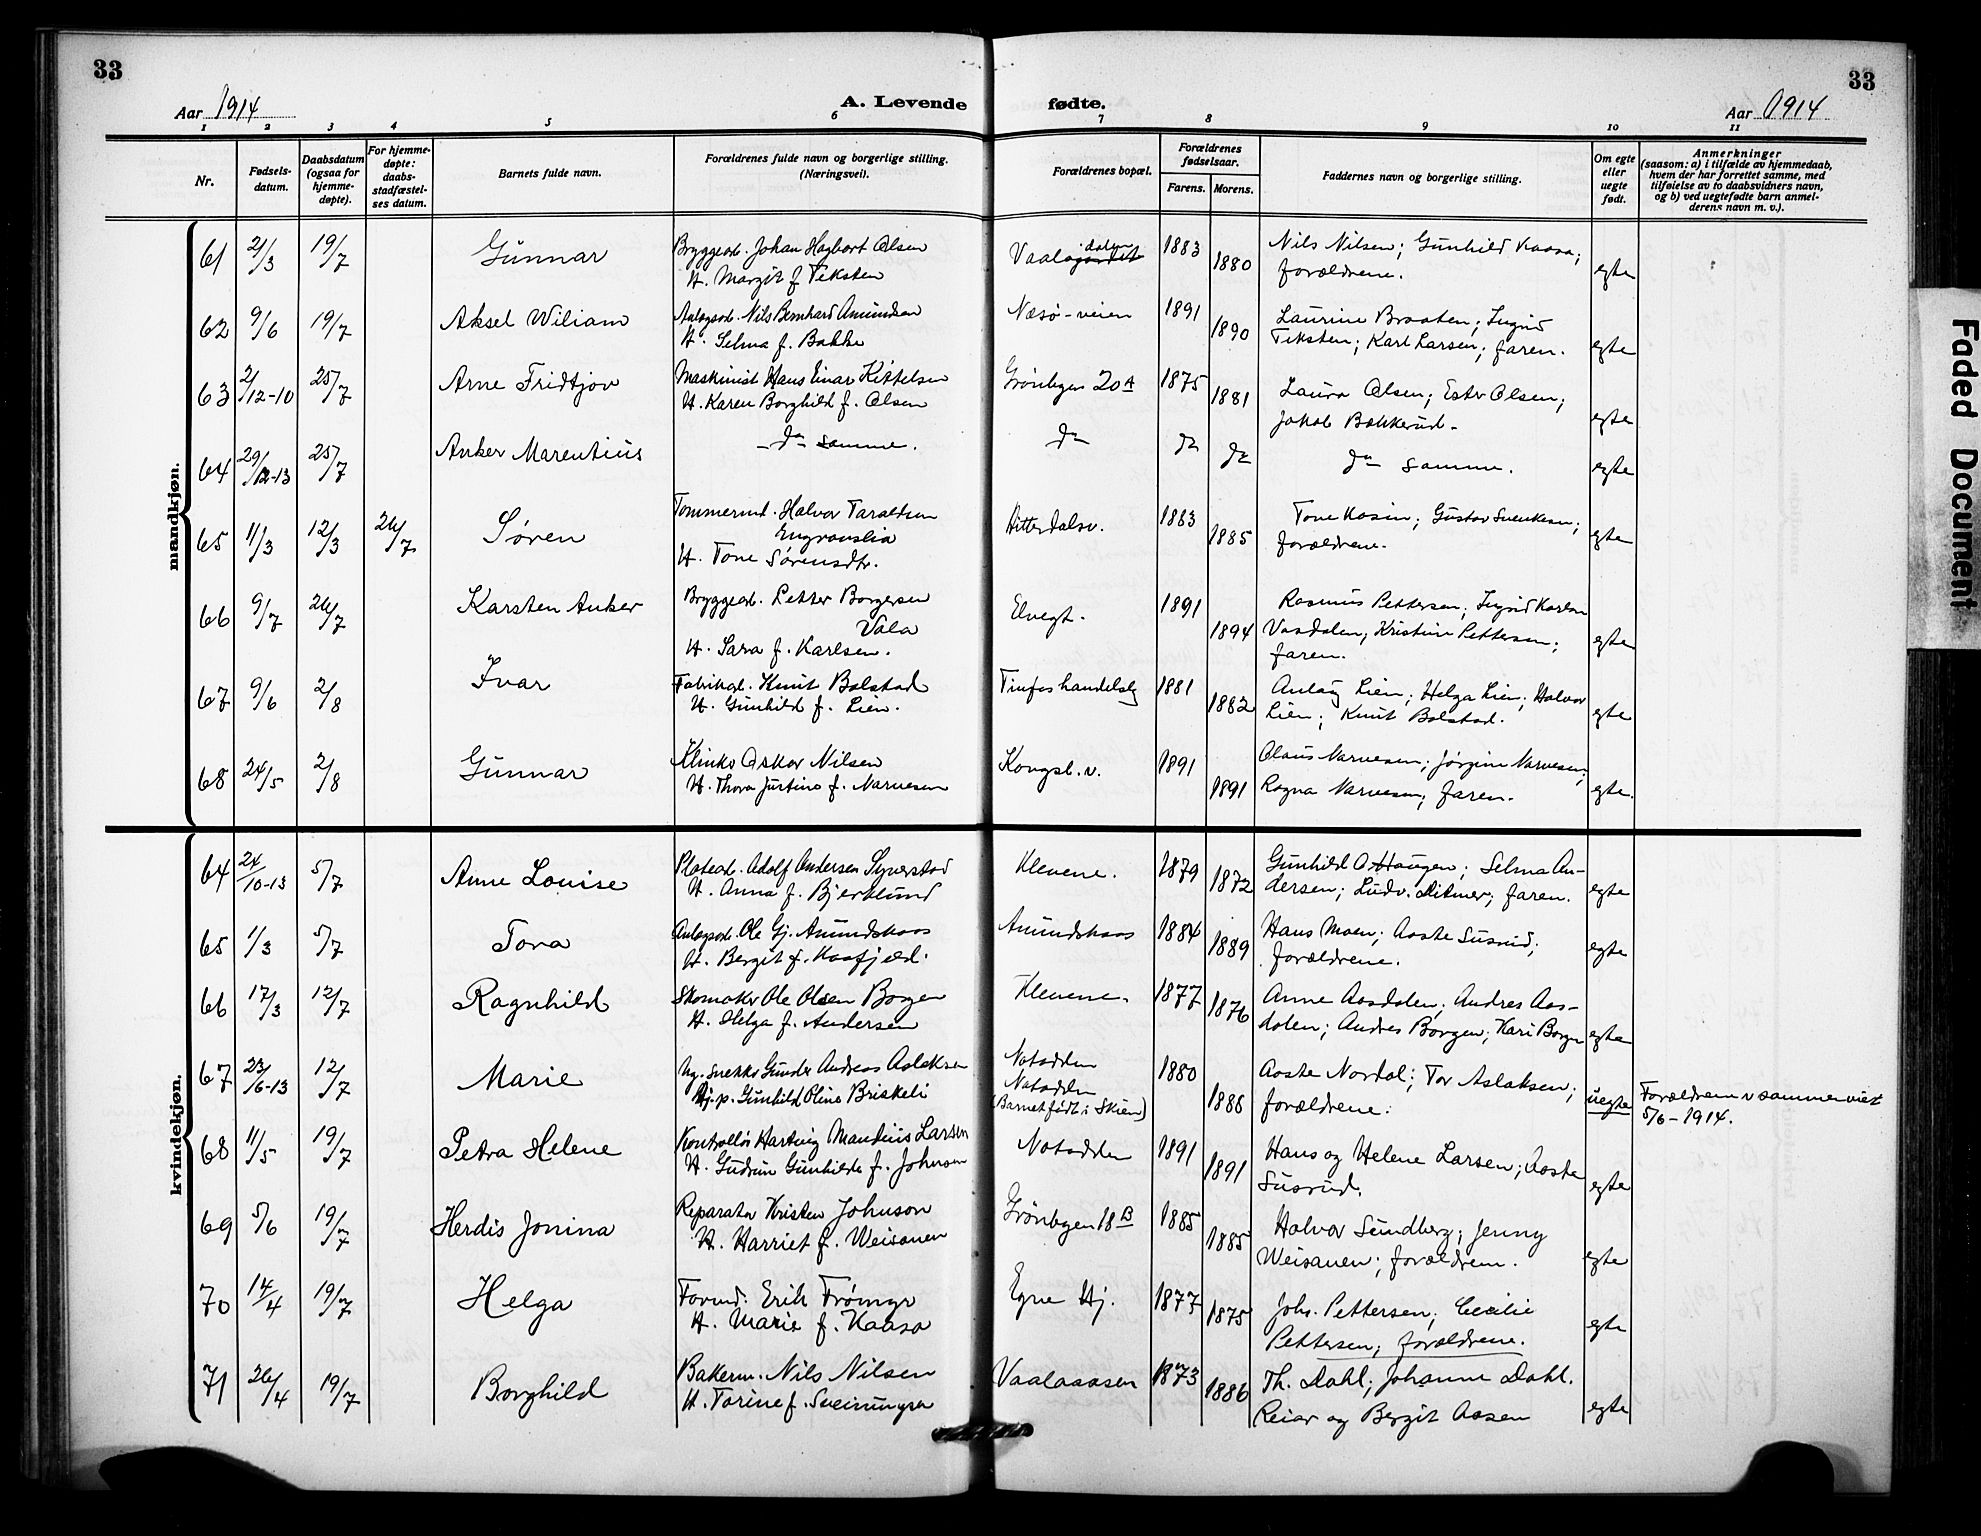 33
33
Aar 1914
A. Levende
fødte.
Aar 1914
1 2 3 4 5 6 7 8 9 10 11
Nr.
Fødsels-
datum.
Daabsdatum
(ogsaa for
hjemme-
døpte).
For hjemme-
døpte:
daabs-
stadfæstel-
ses datum.
Barnets fulde navn.
Forældrenes fulde navn og borgerlige stilling.
(Næringsvei).
Forældrenes bopæl.
Forældrenes
fødselsaar.
Farens. Morens.
Faddernes navn og borgerlige stilling.
Om egte
eller
uegte
født.
Anmerkninger
(saasom: a) i tilfælde av hjemmedaab,
hvem der har forrettet samme, med
tilføielse av to daabsvidners navn,
og b) ved uegtefødte barn anmel-
derens navn m. v.).
mandkjøn.
61 2/3 19/7 Gunnar Bryggearb. Johan Hagbart Olsen 1883 Nils Nilsen; Gunhild Kaasa;
H. Margit f. Teksten 1880 forældrene. egte
62 9/6 19/7 Aksel Wiliam Anlægsarb. Nils Bernhard Amundsen Næsø-veien 1891 Laurine Braaten; Ingrid
H. Selma f. Bakke 1890 Teksten; Karl Larsen; faren. egte
63 2/12-10 25/7 Arne Fridtjov Maskinist Hans Einar Kittelsen Grönbyen 20A 1875 Laura Olsen; Ester Olsen;
H. Karen Borghild f. Olsen 1881 Jakob Bakkerud. egte
64 29/12-13 25/7 Anker Marentius - do samme. do do do do samme. egte
65 11/3 12/3 26/7 Søren Tømmermd. Halvor Taraldsen Hitterdalsv. 1883 Tone Kosin; Gustav Svenksen;
Engranslia
H. Tone Sørensdtr. 1885 forældrene. egte
66 9/7 26/7 Karsten Anker Bryggearb. Petter Borgersen Elvegt. 1891 Rasmus Pettersen; Ingrid Karlsen
Vala
H. Sara f. Karlsen. 1894 Vasdalen; Kristine Pettersen;
faren. egte
67 9/6 2/8 Ivar Fabrikarb. Knut Bolstad Tinfos handelslag 1881 Anlaug Lien; Helga Lien; Halvor
H. Gunhild f. Lien. 1882 Lien; Knut Bolstad. egte
68 24/5 2/8 Gunnar Klinko Oskar Nilsen Kongsb. v. 1891 Olaus Narvesen; Jørgine Narvesen;
H. Thora Justine f. Narvesen 1891 Ragna Narvesen; faren. egte.
kvindekjøn.
64 24/10-13 5/7 Anne Louise Platearb. Adolf Andersen Syverstad Klevene. 1879 Gunhild A. Haugen; Selma An-
H. Anna f. Bjerklund 1872 dersen; Ludv. Ditmer; faren. egte
65 1/3 5/7 Tora Anlægsarb. Ole Gj. Amundskaas Amundskaas 1884 Hans Moen; Aaste Susrud;
H. Bergit f. Kaafjæld. 1889 forældrene. egte
66 17/3 12/7 Ragnhild Skomaker Ole Olsen Borgen Klevene. 1877 Anne Aasdalen; Andres Aas-
H. Helga f. Andersen 1876 dalen; Andres Borgen; Kari Borgen egte
67 23/6-13 12/7 Marie Ug. snekker Gunder Andreas Aslaksen Notodden 1880 Aaste Nordal; Tor Aslaksen;
Pj. p. Gunhild Oline Briskeli Notodden
(Barnet født i Skien) 1888 forældrene. uegte Forældrene v. sammenviet
5/6-1914.
68 11/5 19/7 Petra Helene Kontrollör Hartvig Mandius Larsen Notodden 1891 Hans og Helene Larsen; Aaste
H. Gudrun Gunhilde f. Johnsen 1891 Susrud. egte
69 5/6 19/7 Herdis Jonina Reparatør Kristen Johnson Grönbyen 18B 1885 Halvor Sundberg; Jenny
H. Harriet f. Weisanen 1885 Weisanen; forældrene. egte
70 14/4 19/7 Helga Formd. Erik Frömyr Egne Hj. 1877 Johs. Pettersen; Cecilie
H. Marie f. Kaasa 1875 Pettersen; forældrene. egte
71 26/4 19/7 Borghild Bakerm. Nils Nilsen Vaalaaasen 1873 Th. Dahl; Johanne Dahl.
H. Torine f. Sveinungsen 1886 Reiar og Bergit Aasen egte
Faded Document